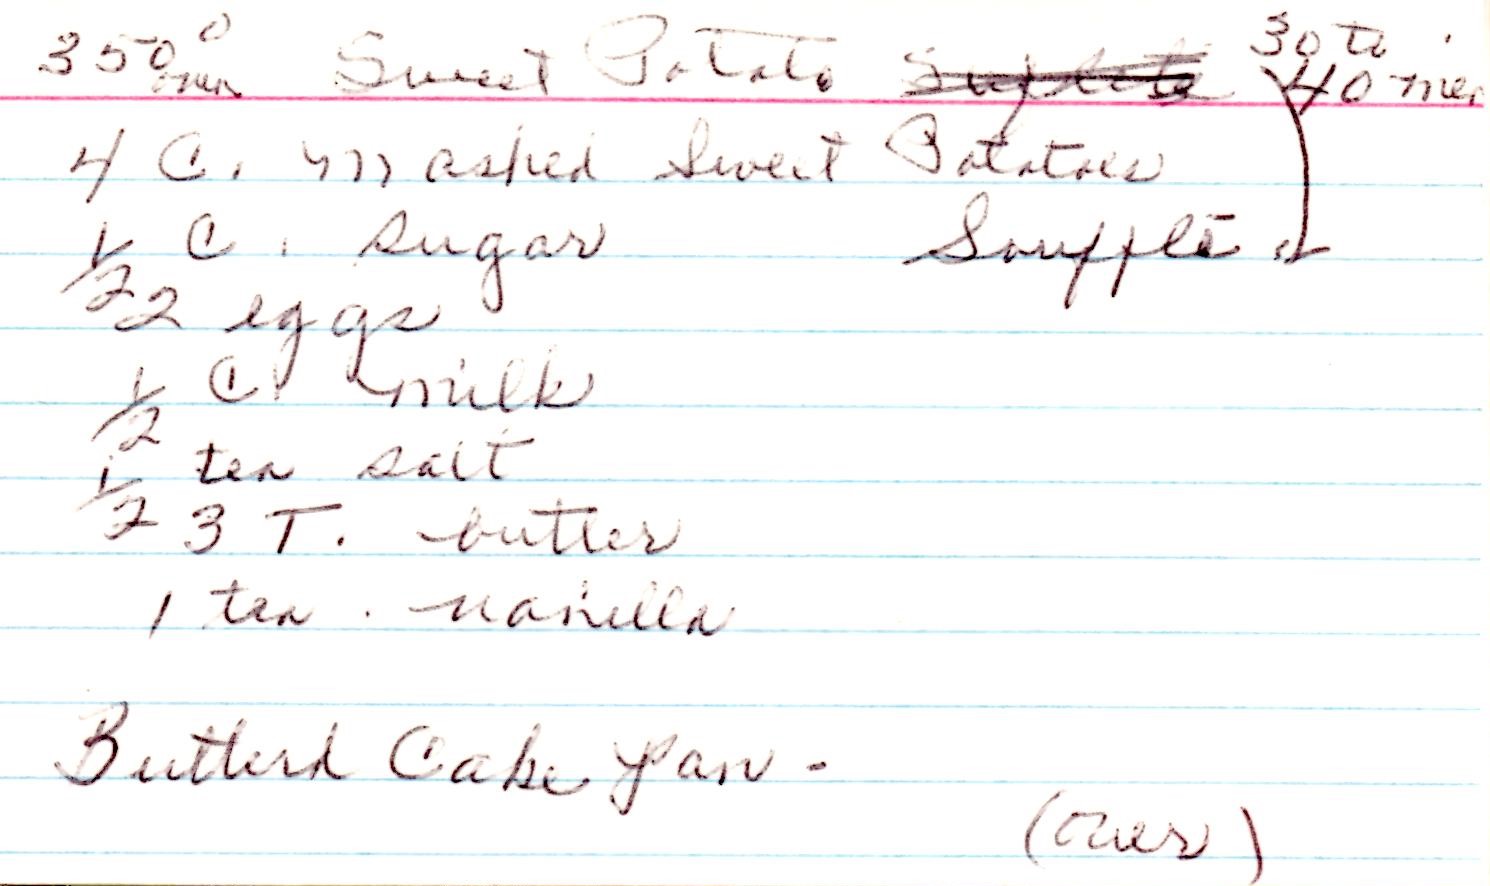 350° Sweet Potato 30 to
oven 40 min
4 C. mashed Sweet Potatoes
1/2 C. sugar Souffle
2 eggs
1/2 C. milk
1/2 tea salt
3 T. butter
1 tea. vanilla
Butterd Cake Pan -
(over)